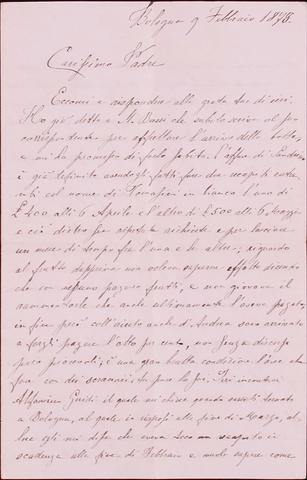 Bologna 9 Febbraio 1878.
Carissimo Padre
Eccomi a rispondere alla grata tua di ieri.
Ho già detto a M. Bassi che subito scriva al suo
corrispondente per affrettare l'arrivo delle botte,
e mi ha promesso di farlo subito. L'affare di
è già definito avendogli fatti fare due recapiti
col nome di in bianco l'uno di
£ 400 alli 6 Aprile e l'altro di £ 500 alli 6 Marzo
e ciò dietro sue richieste e per lasciare
un mese di tempo fra l'una e le altre; riguardo
al frutto dapprima non voleva saperne affatto dicendo
che non pagare frutti, e non giovava il
rammentarle che anche ultimamente l'aveva pagato,
in fine però coll'aiuto anche d'Andrea sono arrivato
a fargli pagare l'otto per cento, non senza
però, è una gran brutta condizione l'aver che
fare con dei Ieri incontrai
Alfonsino Guidi il quale mi chiese quando saresti tornato
a Bologna, al quale io risposi alla fine di Marzo, al-
lora egli mi disse che aveva teco un recapito in
scadenza alla fine di Febbraio e vuole sapere come